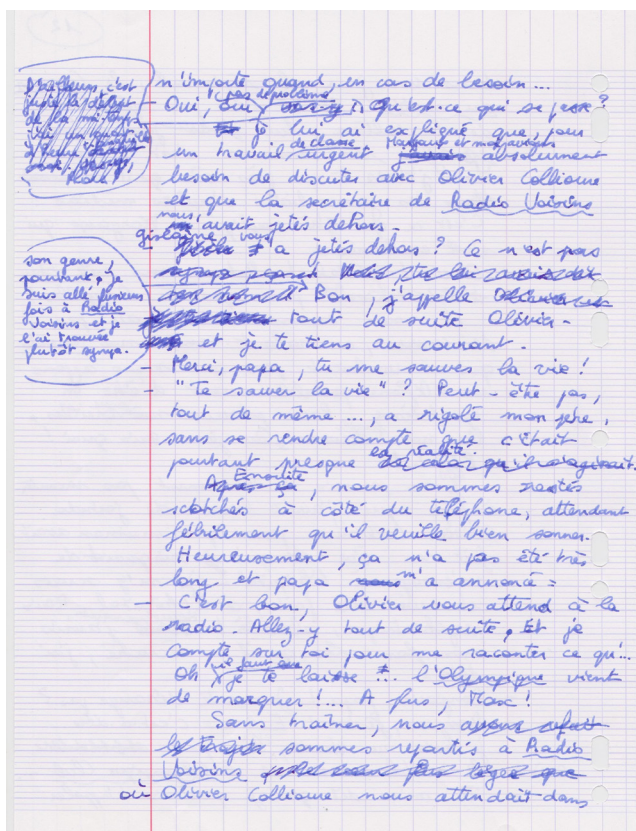 n'importe quand, en cas de besoin...
- Oui, pas de problème, qu'est-ce qui se passe ?
Je lui ai expliqué que, pour
un travail de classe urgent Margaux et moi avions absolument
besoin de discuter avec Olivier Collioure
et que la secrétaire de Radio Voisins
nous avait jetés dehors.
- Gislaine vous a jetés dehors ? Ce n'est pas
son genre,
pourtant, je
suis allé plusieurs
fois à Radio
Voisins et je
l'ai trouvée
plutôt sympa.
Bon, j'appelle
tout de suite Olivier
et je te tiens au courant.
- Merci, papa, tu me sauves la vie !
- "Te sauver la vie" ? Peut-être pas,
tout de même..., a rigolé mon père,
sans se rendre compte que c'était
pourtant presque la réalité.
Ensuite, nous sommes restés
scotchés à côté du téléphone, attendant
fébrilement qu'il veuille bien sonner.
Heureusement, ça n'a pas été très
long et papa m'a annoncé :
- C'est bon, Olivier vous attend à la
radio. Allez-y tout de suite. Et je
compte sur toi pour me raconter ce qu'...
Oh il faut que je te laisse !... l'Olympique vient
de marquer !... A plus, Max !
Sans traîner, nous
sommes repartis à Radio
Voisins
où Olivier Collioure nous attendait dans